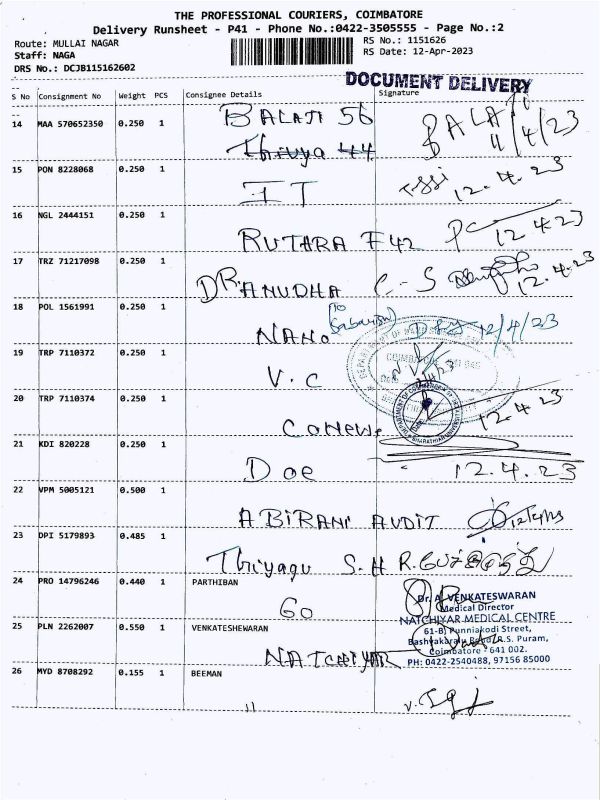 THE PROFESSIONAL COURIERS, COIMBATORE
Delivery Runsheet - P41 - Phone No.:0422-3505555 - Page No.:2
Route: MULLAI NAGAR RS No.: 1151626
Staff: NAGA RS Date: 12-Apr-2023
DRS No.: DCJB115162602
DOCUMENT DELIVERY
S No Consignment No Weight PCS Consignee Details Signature
14 MAA 570652350 0.250 1 BALAJI 56 BALAJI
Thivya 44 11/4/23
15 PON 8228068 0.250 1 IT 12.4.23
16 NGL 2444151 0.250 1 RUTARA F42 12 4.23
17 TRZ 71217098 0.250 1 DR. ANUDHA 12.4.23
18 POL 1561991 0.250 1 NANO 12/4/23
19 TRP 7110372 0.250 1 V.C
20 TRP 7110374 0.250 1 12.4.23
21 KDI 820228 0.250 1 Doe 12.4.23
22 VPM 5005121 0.500 1 ABIRAMI AUDIT
23 DPI 5179893 0.485 1 Thiyagu S.H
24 PRO 14796246 0.440 1 PARTHIBAN
Go
Dr. A. VENKATESWARAN
Medical Director
NATCHIYAR MEDICAL CENTRE
25 PLN 2262007 0.550 1 VENKATESHEWARAN
61-B, Punniakodi Street,
Bashyakaralu Road, R.S. Puram,
NATCHIYAR
Coimbatore - 641 002.
PH: 0422-2540488, 97156 85000
26 MYD 8708292 0.155 1 BEEMAN
11